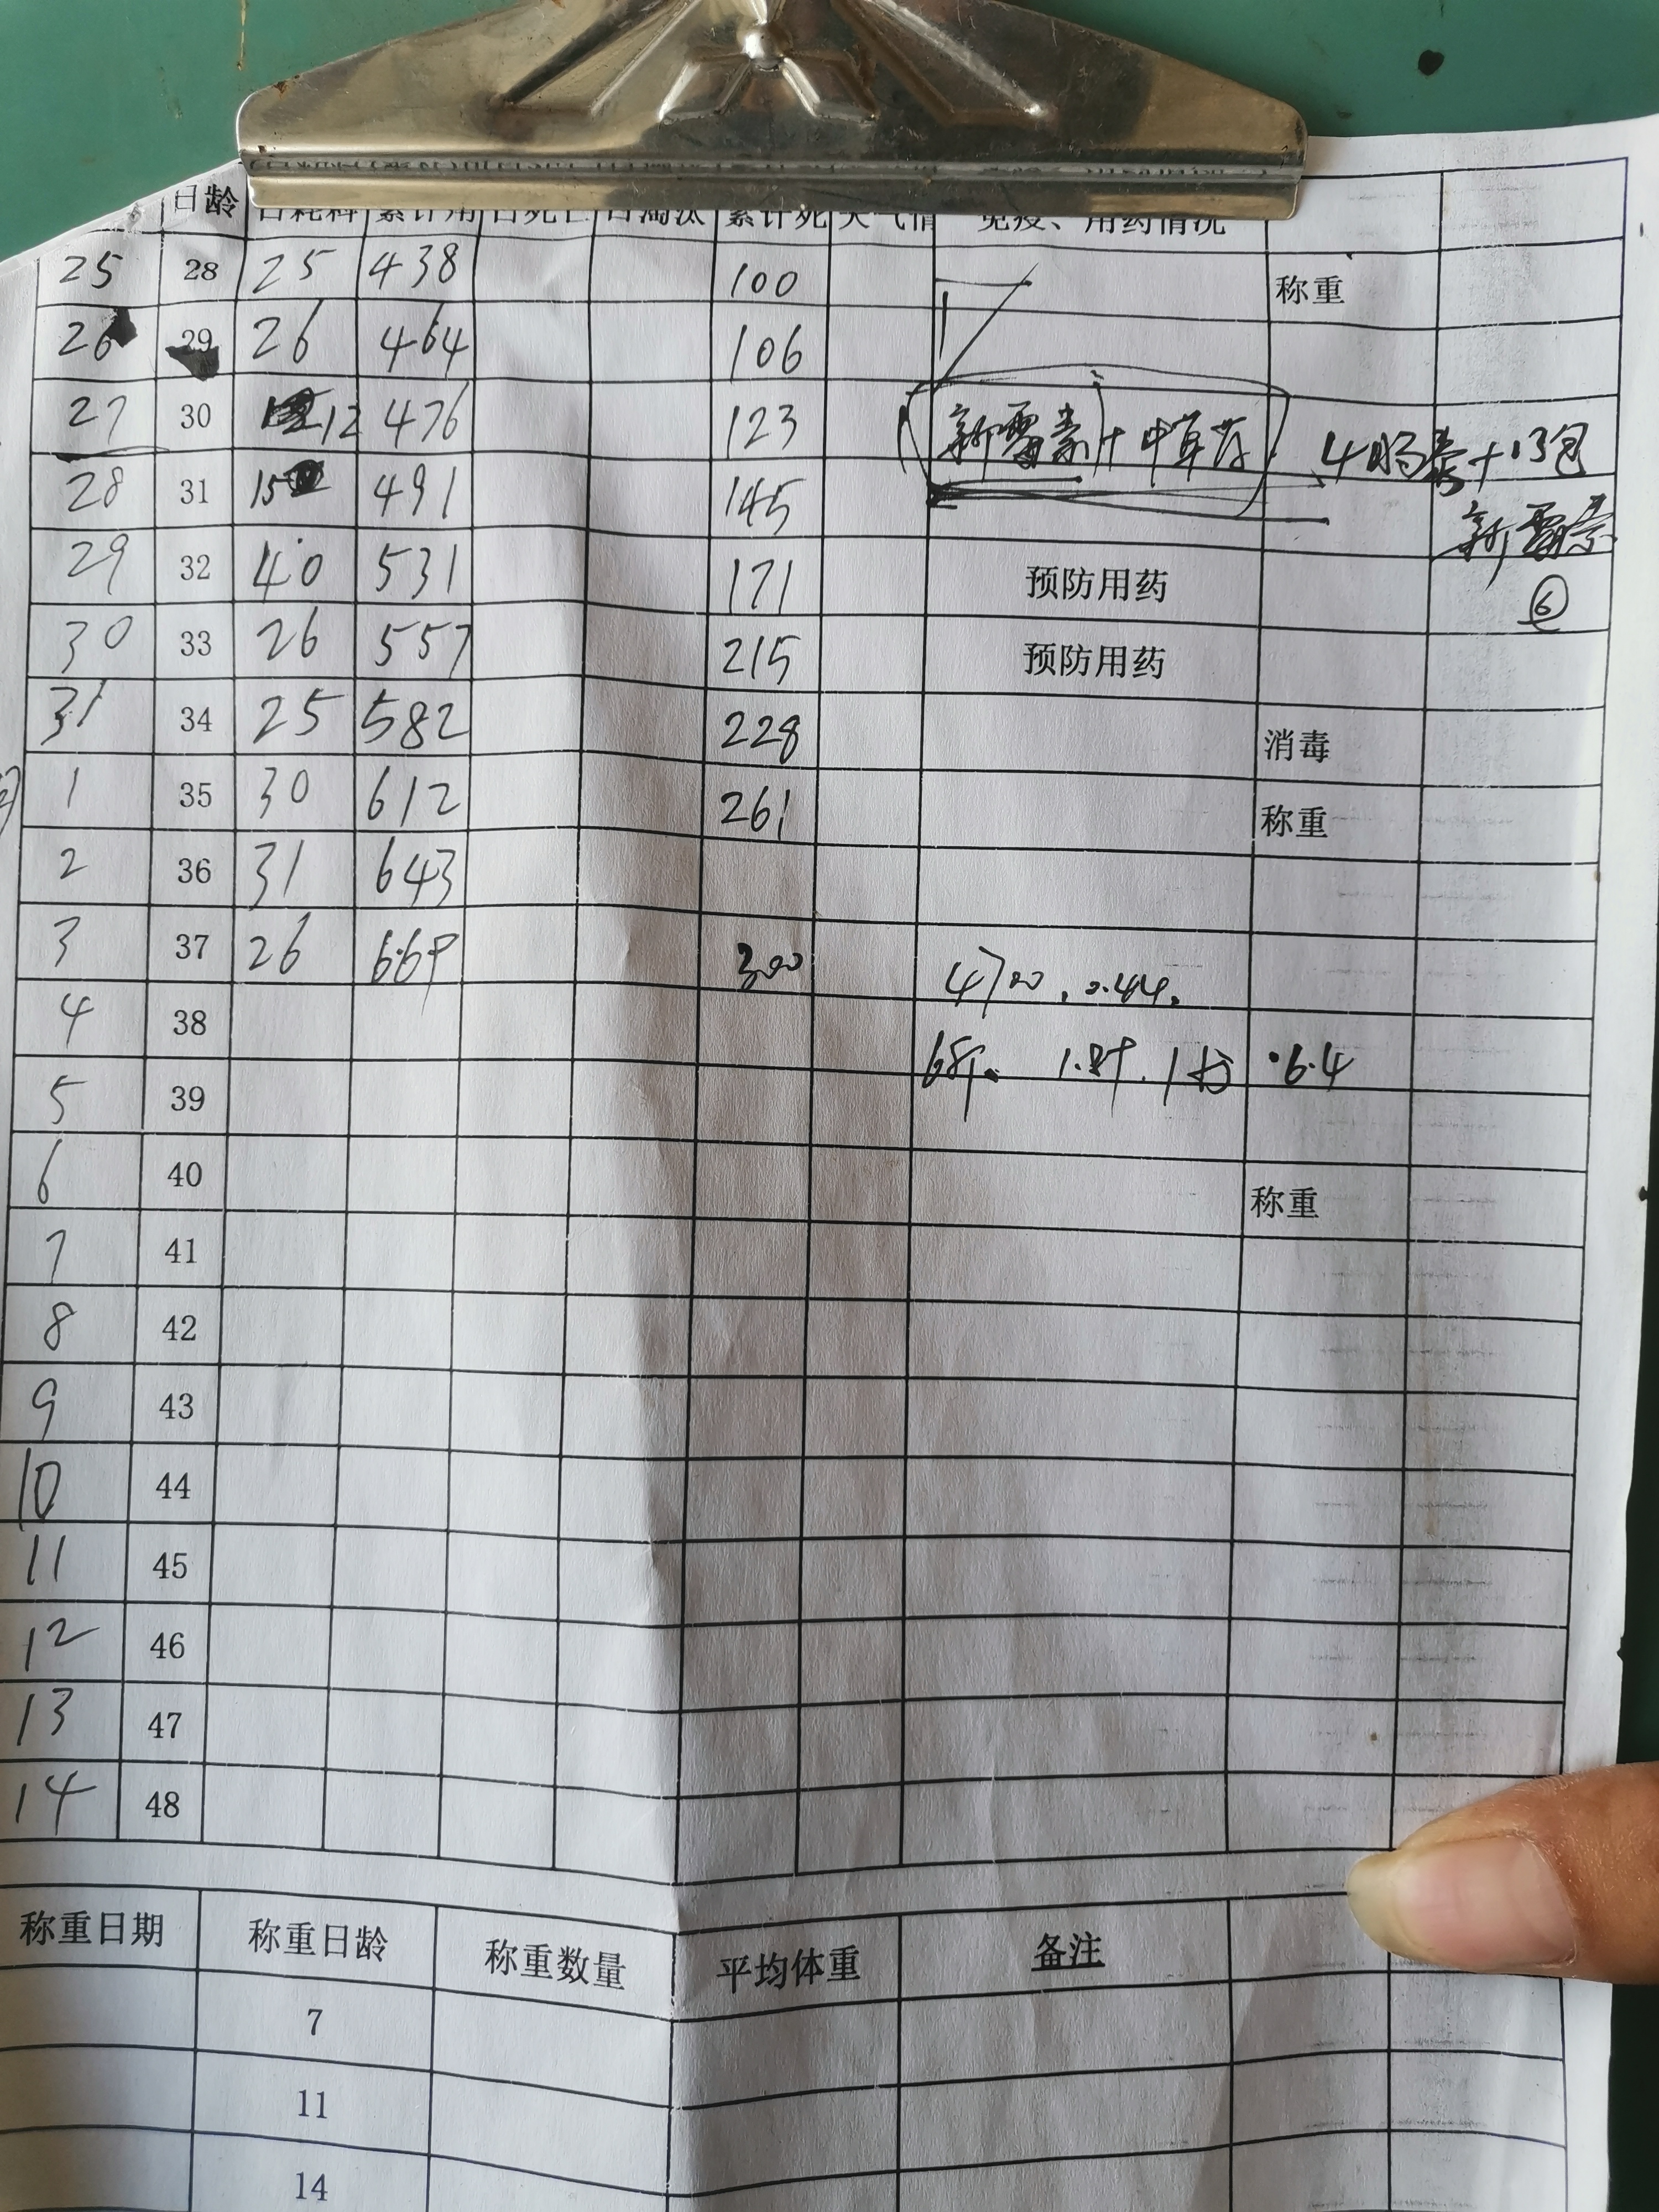 日龄 日耗料 累计用 日死亡 日淘汰 累计死 天气情 免疫、用药情况
25 28 25 438 100 称重
26 29 26 464 106
27 30 12 476 123 新霉素+中草药 4肠泰+13包
28 31 15 491 145 新霉素
29 32 40 531 171 预防用药 ⑥
30 33 26 557 215 预防用药
31 34 25 582 228 消毒
1 35 30 612 261 称重
2 36 31 643
3 37 26 669 300 4700
4 38 6.4
5 39
6 40 称重
7 41
8 42
9 43
10 44
11 45
12 46
13 47
14 48
称重日期 称重日龄 称重数量 平均体重 备注
7
11
14